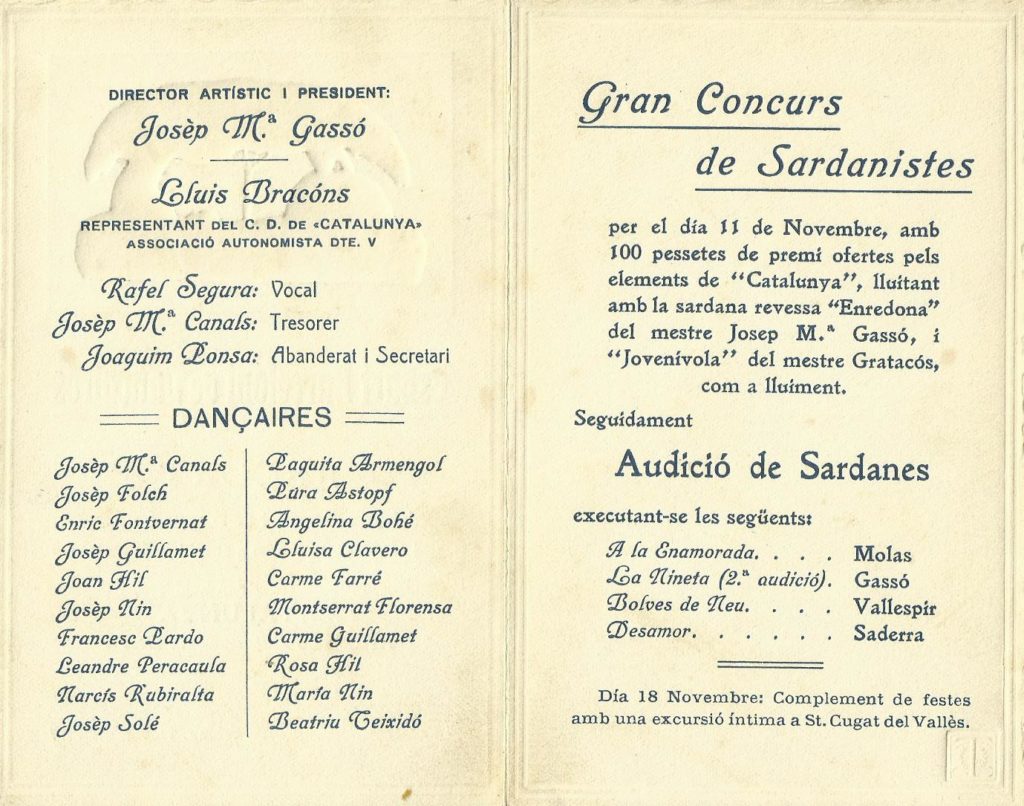 DIRECTOR ARTÍSTIC I PRESIDENT:
Josèp M.ª Gassó
Lluis Bracóns
REPRESENTANT DEL C. D. DE «CATALUNYA»
ASSOCIACIÓ AUTONOMISTA DTE. V
Rafel Segura: Vocal
Josèp M.ª Canals: Tresorer
Joaquim Ponsa: Abanderat i Secretari
DANÇAIRES
Josèp M.ª Canals
Josèp Folch
Enric Fontvernat
Josèp Guillamet
Joan Hil
Josèp Nin
Francesc Pardo
Leandre Peracaula
Narcís Rubiralta
Josèp Solé
Paquita Armengol
Pura Astopf
Angelina Bohé
Lluisa Clavero
Carme Farré
Montserrat Florensa
Carme Guillamet
Rosa Hil
María Nin
Beatriu Teixidó
Gran Concurs
de Sardanistes
per el día 11 de Novembre, amb
100 pessetes de premi ofertes pels
elements de “Catalunya”, lluitant
amb la sardana revessa “Enredona”
del mestre Josep M.ª Gassó, i
“Jovenívola” del mestre Gratacós,
com a lluiment.
Seguidament
Audició de Sardanes
executant-se les següents:
A la Enamorada. . . . Molas
La Nineta (2.ª audició). Gassó
Bolves de Neu. . . . Vallespir
Desamor. . . . . . Saderra
Día 18 Novembre: Complement de festes
amb una excursió íntima a St. Cugat del Vallès.